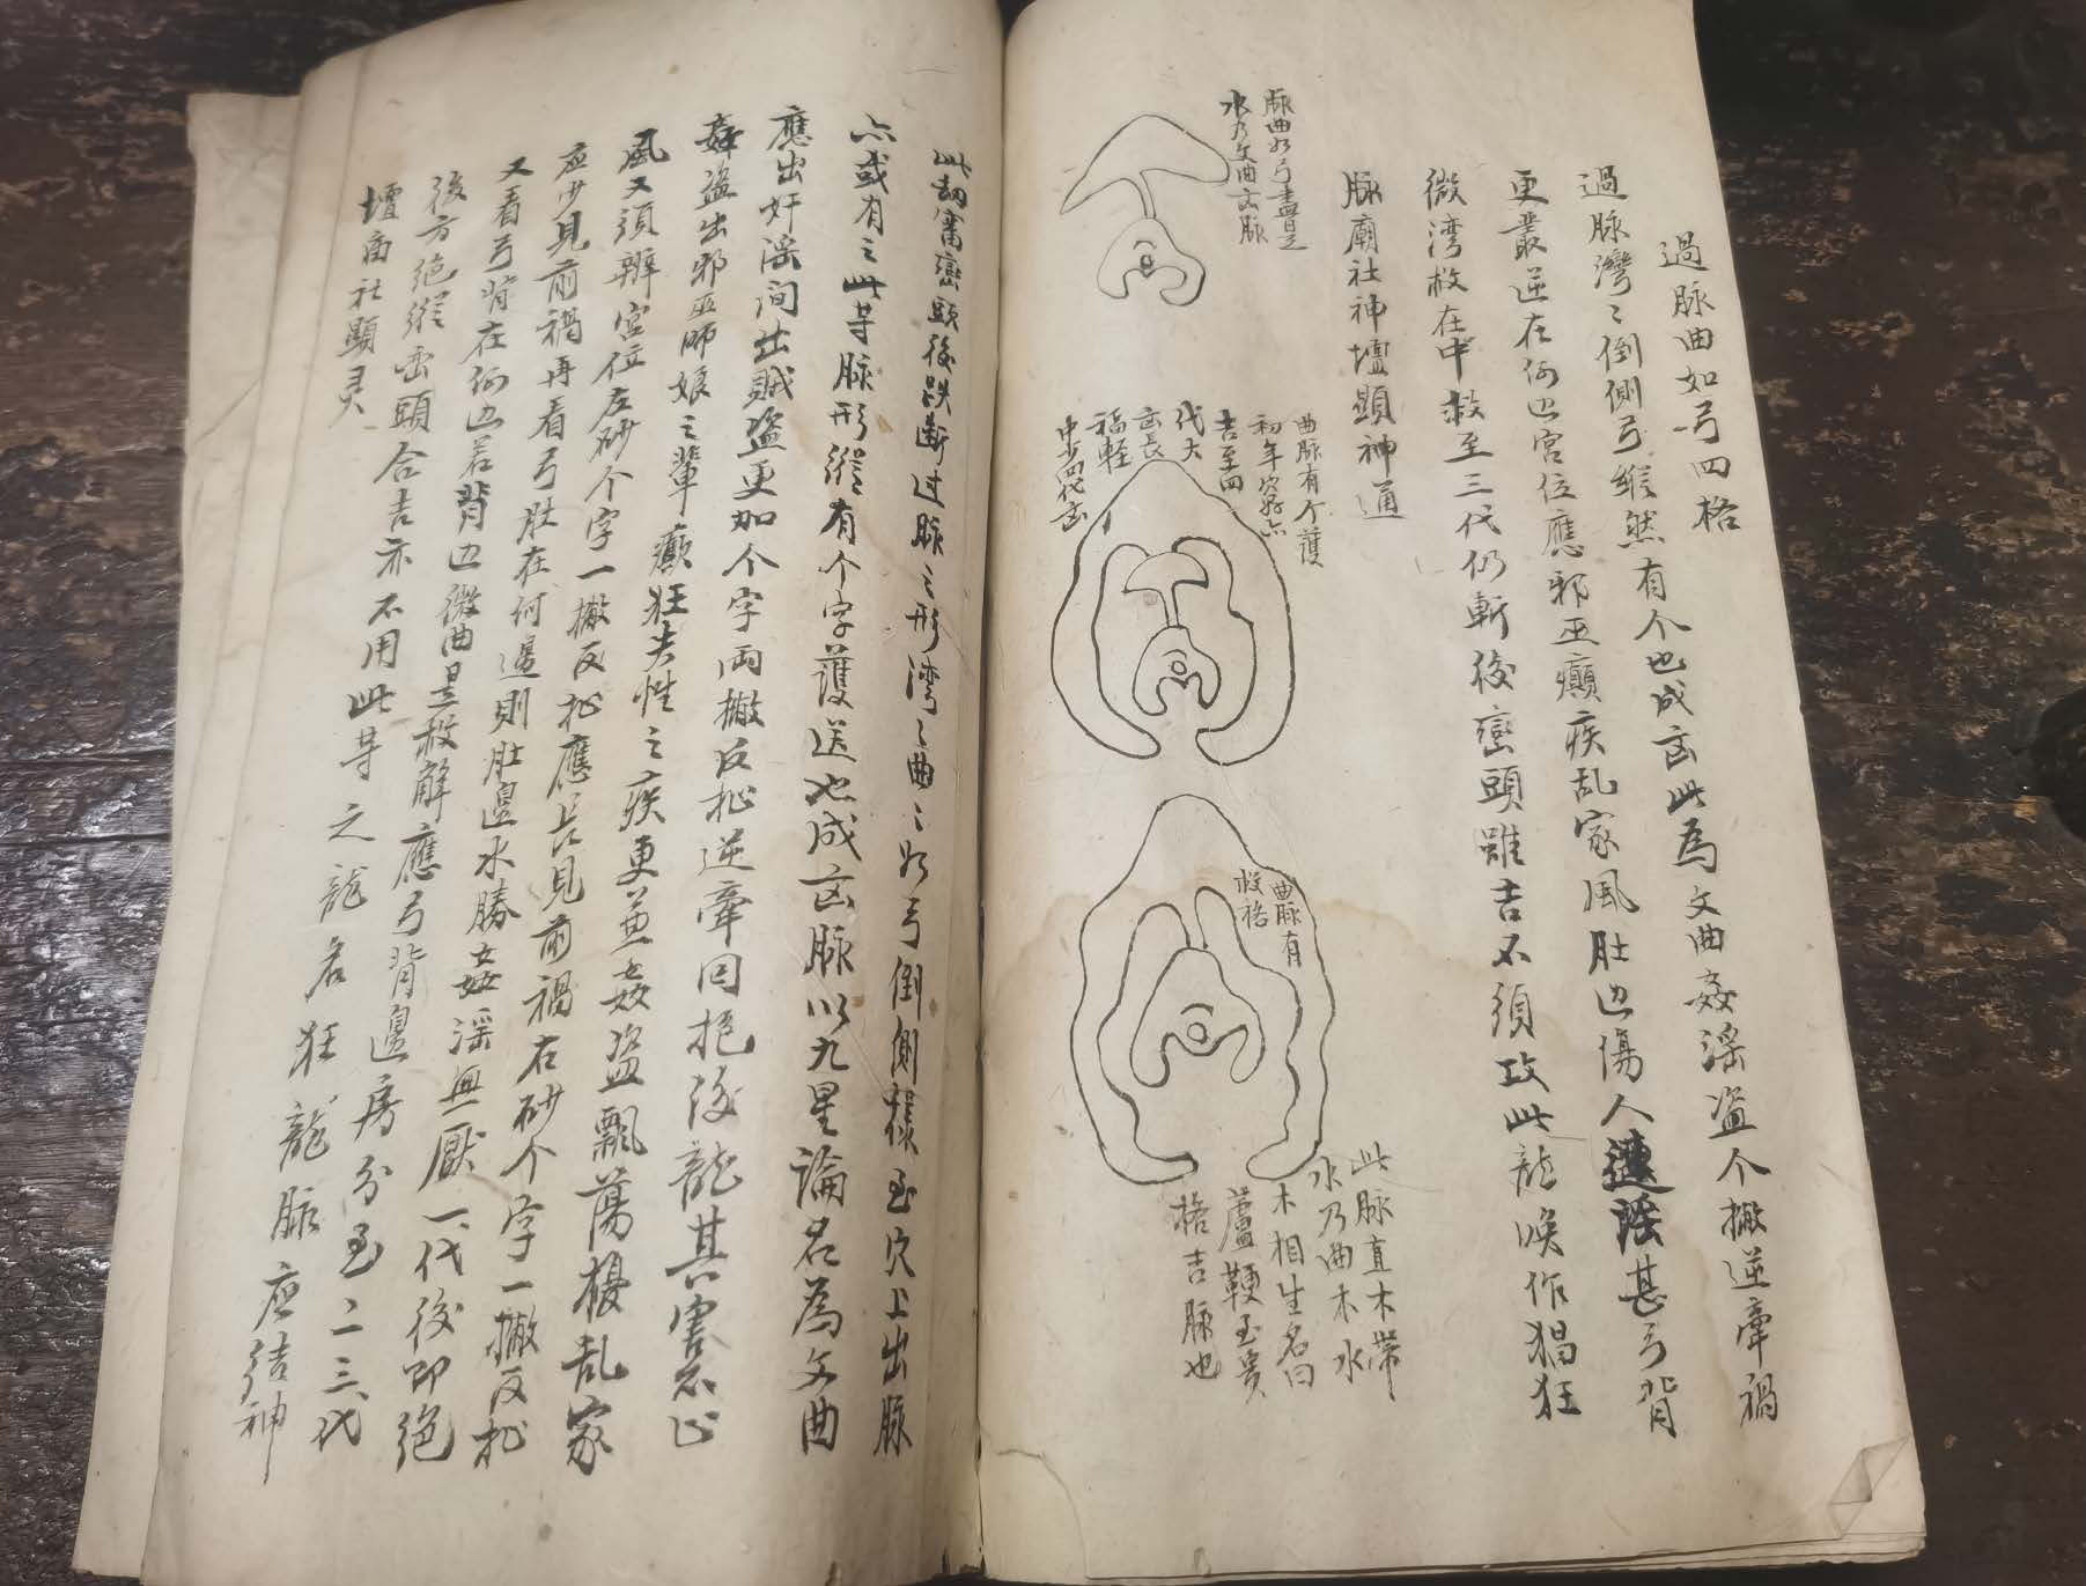 過脉曲如弓四格
過脉灣〻倒側弓縱然有个也成㐫此為文曲姦淫盗个撇逆牽禍
更叢逆在何边宮位應邪巫癲疾乱家風肚边傷人連淫甚弓背
微湾救在中救至三代仍斬後巒頭雖吉不須攻此龍喚作猖狂
脉廟社神壇顕神通
脉曲如弓盡是
水乃文曲㐫脉
曲脉有个護
初年穴好亦
吉至四
代大
㐫長
福輕
中步四代㐫
曲脉有
救格
此脉直木帶
水乃曲木水
木相生名曰
蘆鞭至貴
格吉脉也
此刼審巒頭後跌斷过脉之形湾〻曲〻如弓倒側樣至穴上出脉
亦或有之此等脉形縱有个字護送也成㐫脉以九星論名為文曲
應出奸淫间出賊盗更加个字両撇反抝逆牽回抱後龍其害不止
姦盗出邪巫師娘之輩癲狂失性之疾更兼姦盗飄蕩擾乱家
風又須辨宮位左砂个字一撇反抝應長見前禍右砂个字一撇反抝
应少見前禍再看弓肚在何邊則肚邊水勝姦淫無厭一代後即絕
又看弓背在何边若背边微曲是救解應弓背邊房分至二三代
後方绝縱巒頭合吉亦不用此等之龍名狂龍脉应结神
壇廟社顕灵